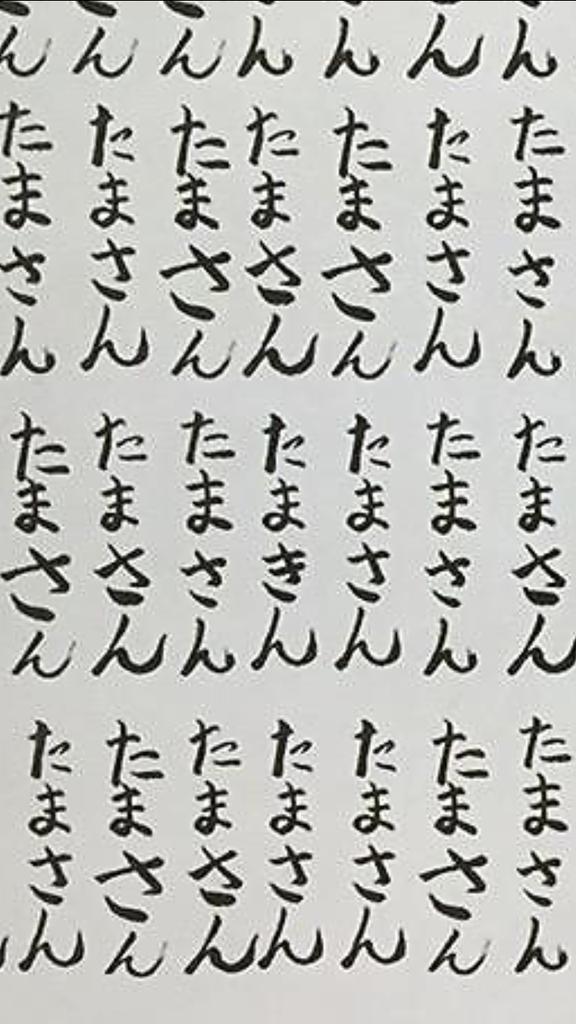 ん
ん
ん
ん
ん
ん
ん
たまさん
たまさん
たまさん
たまさん
たまさん
たまさん
たまさん
たまさん
たまさん
たまさん
たまきん
たまさん
たまさん
たまさん
たまさん
たまさん
たまさん
たまさん
たまさん
たまさん
たまさん